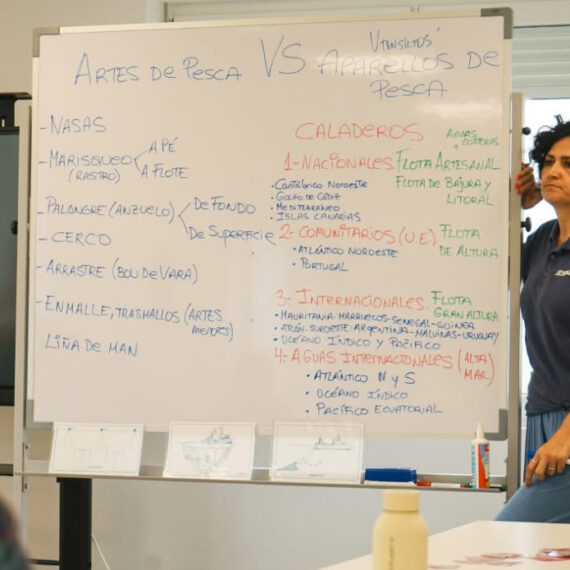 ARTES DE PESCA VS APARELLOS DE PESCA
UTENSILIOS
- NASAS
- MARISQUEO A PÉ
(RASTRO) A FLOTE
- PALANGRE (ANZUELO) DE FONDO
DE SUPERFICIE
- CERCO
- ARRASTRE (BOU DE VARA)
- ENMALLE, TRASMALLOS (ARTES
MENORES)
LIÑA DE MAN
CALADEROS
AGUAS
COSTERAS
1-NACIONALES. FLOTA ARTESANAL
FLOTA DE BAJURA Y
LITORAL
• CANTÁBRICO NOROESTE
• GOLFO DE CÁDIZ
• MEDITERRÁNEO
• ISLAS CANARIAS
2- COMUNITARIOS (U.E.) FLOTA
DE ALTURA
• ATLÁNTICO NOROESTE
• PORTUGAL
3- INTERNACIONALES. FLOTA
GRAN ALTURA
• MAURITANIA-MARRUECOS-SENEGAL-GUINEA
• ATLÁN. SUROESTE: ARGENTINA-MALVINAS-URUGUAY
• OCÉANO ÍNDICO Y PACÍFICO
4- AGUAS INTERNACIONALES (ALTA
MAR)
• ATLÁNTICO N Y S
• OCÉANO ÍNDICO
• PACÍFICO ECUATORIAL